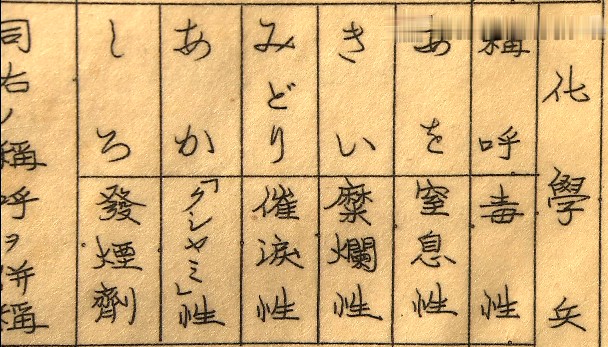 化學兵
稱呼 毒性
あを 窒息性
きい 糜爛性
みどり 催淚性
あか 「クシャミ」性
しろ 發煙劑
司右ノ稱呼ヲ併稱